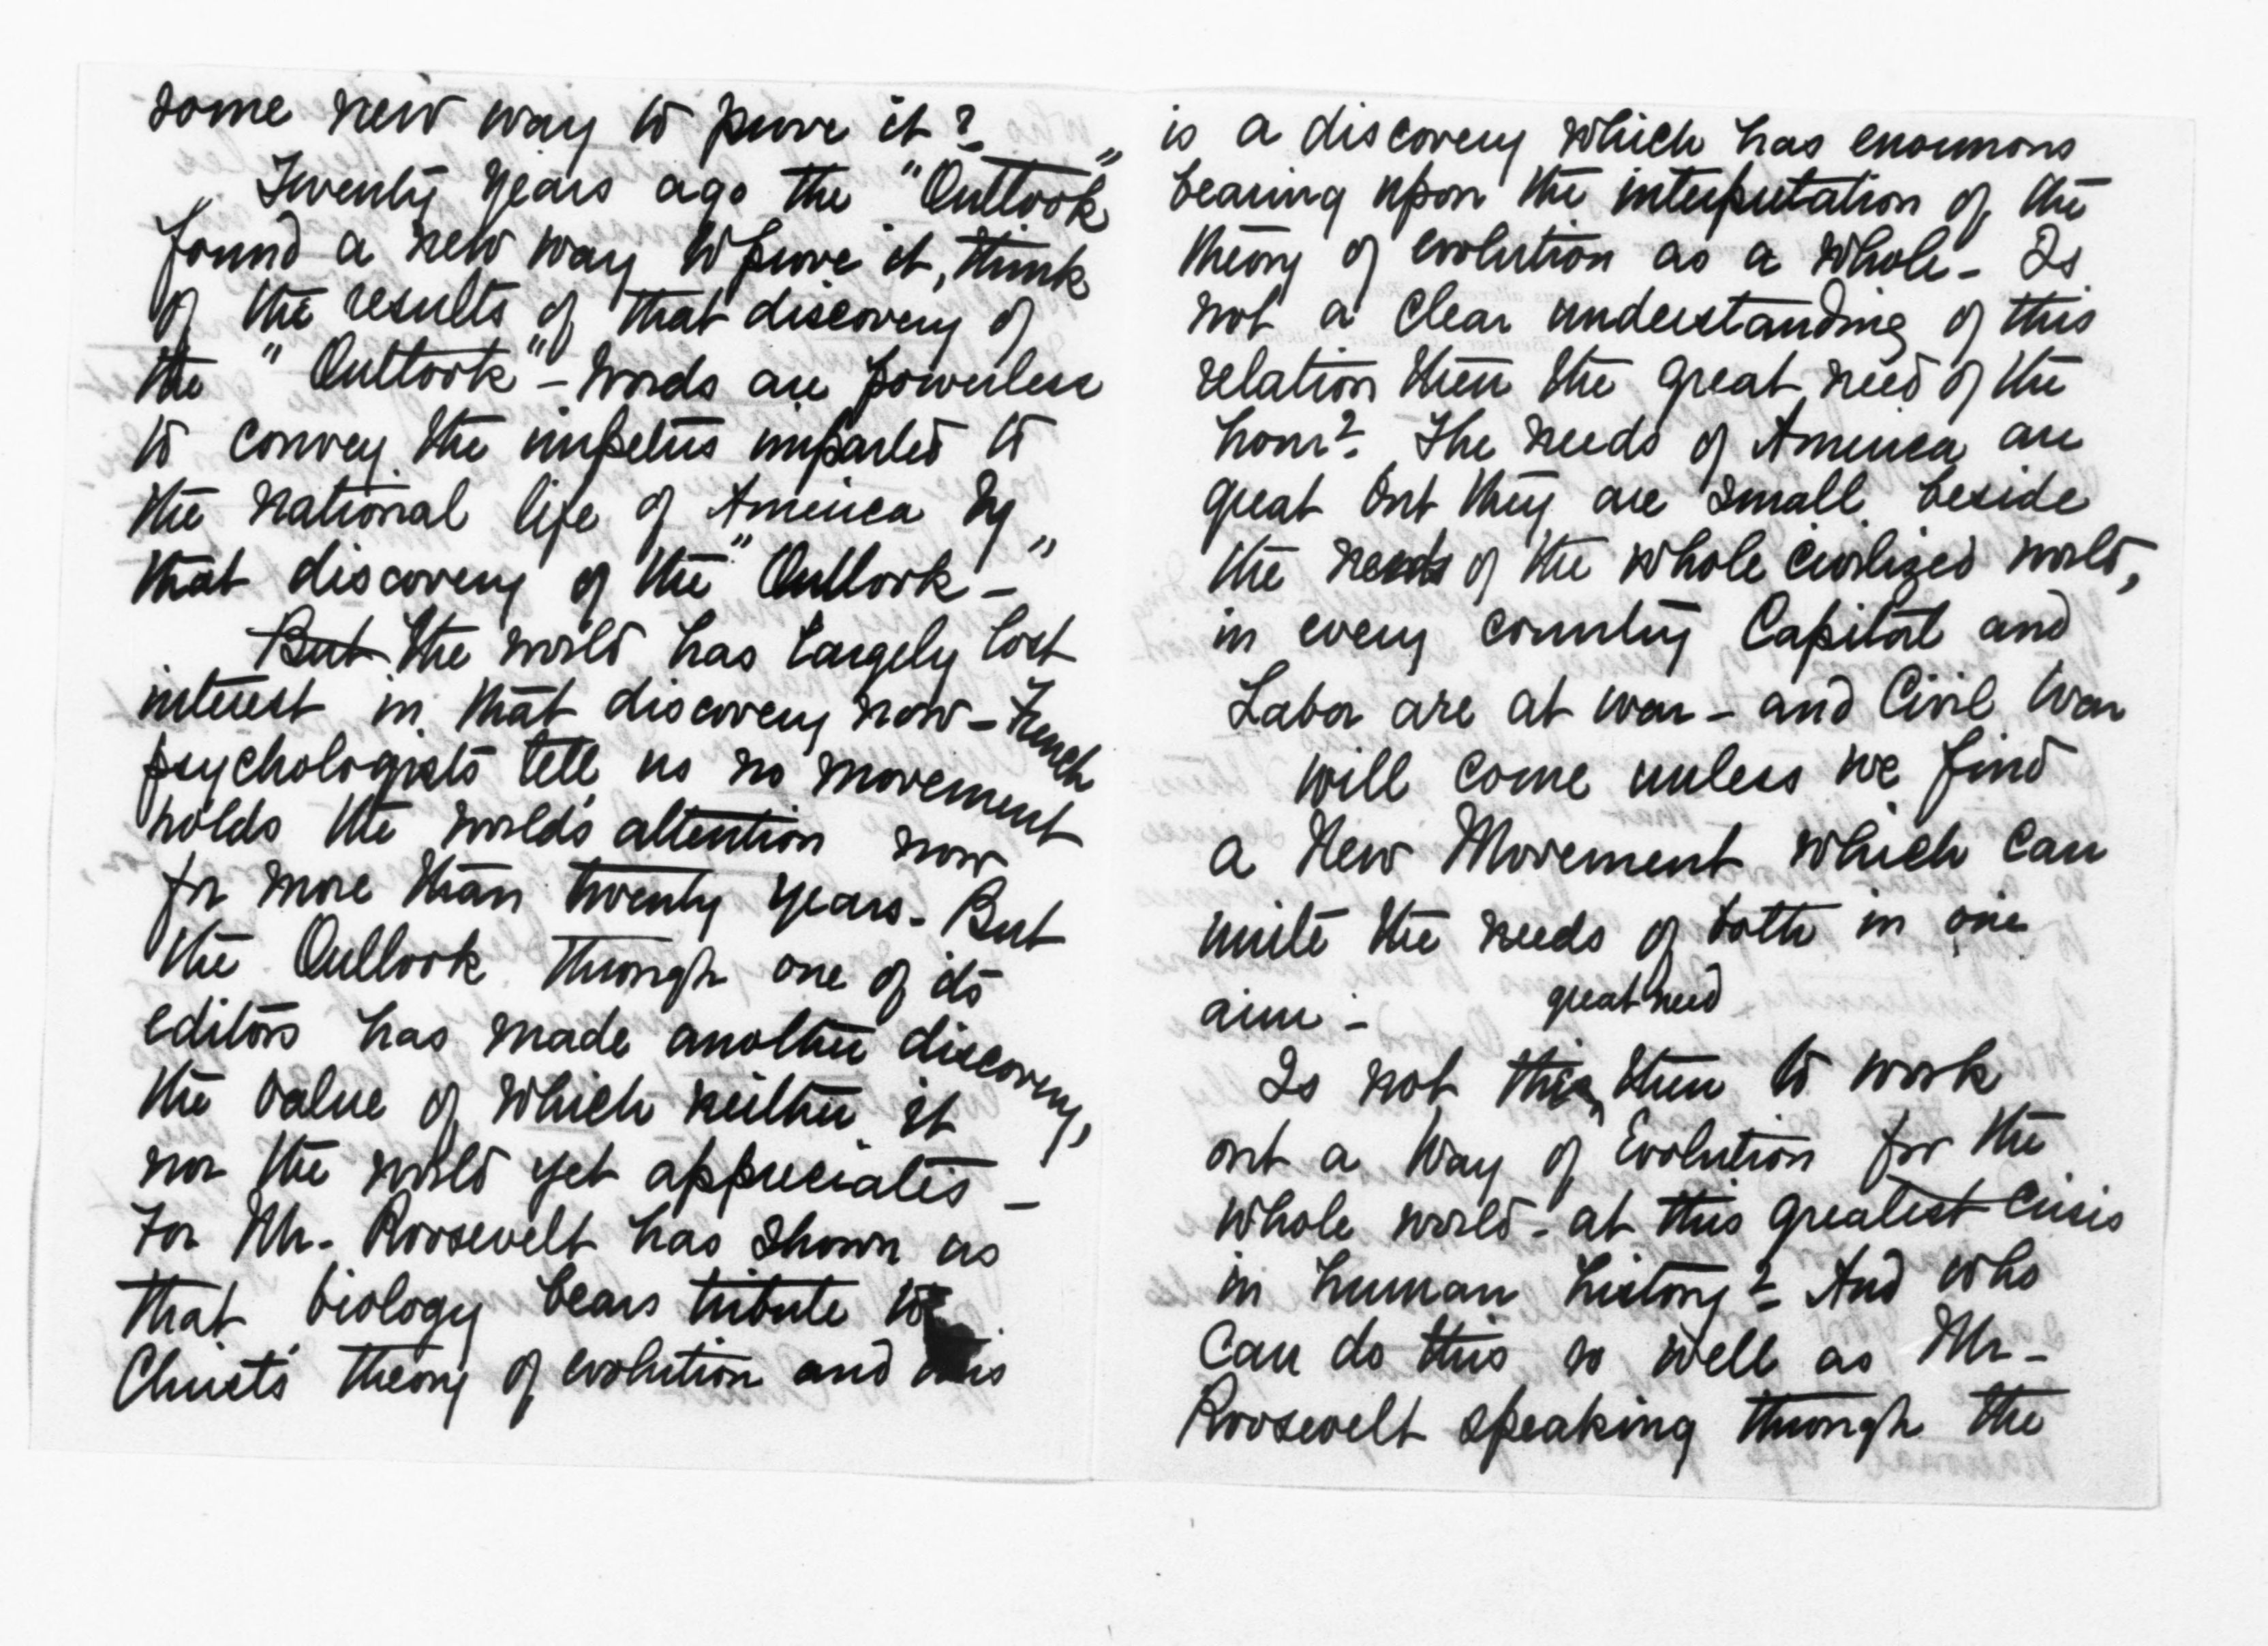 some new way to prove it?
Twenty years ago the "Outlook"
found a new way to prove it, think
of the results of that discovery of
the "Outlook" - Words are powerless
to convey the impetus imparted to
the national life of America by
that discovery of the "Outlook" -
But the world has largely lost
interest in that discovery now - French
psychologists tell us no movement
holds the world's attention now
for more than twenty years. But
the Outlook through one of its
editors has made another discovery,
the value of which neither it
nor the world yet appreciates -
For Mr. Roosevelt has shown us
that biology bears tribute to
Christ's theory of evolution and this
is a discovery which has enormous
bearing upon the interpretation of the
theory of evolution as a whole - Is
not a clear understanding of this
relation then the great need of the
hour? The needs of America are
great but they are small beside
the needs of the whole civilized world,
in every country Capital and
Labor are at war - and Civil War
will come unless we find
a New Movement which can
unite the needs of both in one
aim -
great need
Is not this then to work
out a Way of Evolution for the
whole world - at this greatest crisis
in human history? And who
can do this so well as Mr -
Roosevelt speaking through the